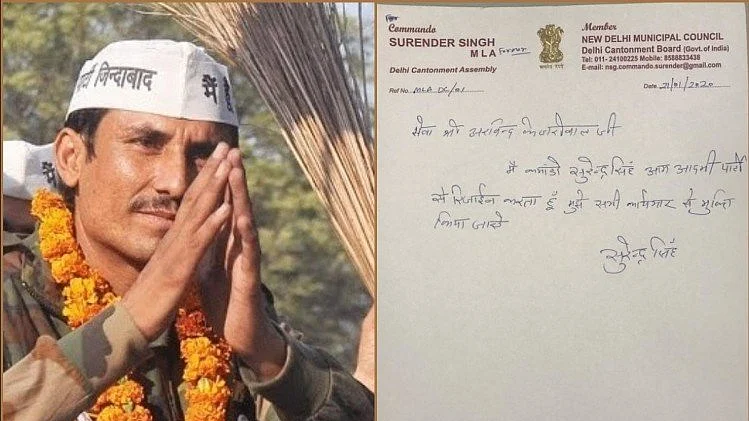 पार्टी ज़िन्दाबाद
मैं हूँ
For
Commando
SURENDER SINGH
MLA Former
Delhi Cantonment Assembly
Member
NEW DELHI MUNICIPAL COUNCIL
Delhi Cantonment Board (Govt. of India)
Tel: 011- 24100225 Mobile: 8588833438
E-mail: nsg.commando.surender@gmail.com
Ref No. MLA DC/01
Date. 21/01/2020
सेवा श्री अरविन्द केजरीवाल जी
मै कमांडो सुरेन्द्र सिंह आम आदमी पार्टी
से रिजाईन करता हूँ मुझे सभी कार्यभार से मुक्ति
किया जाये
सुरेन्द्र सिंह